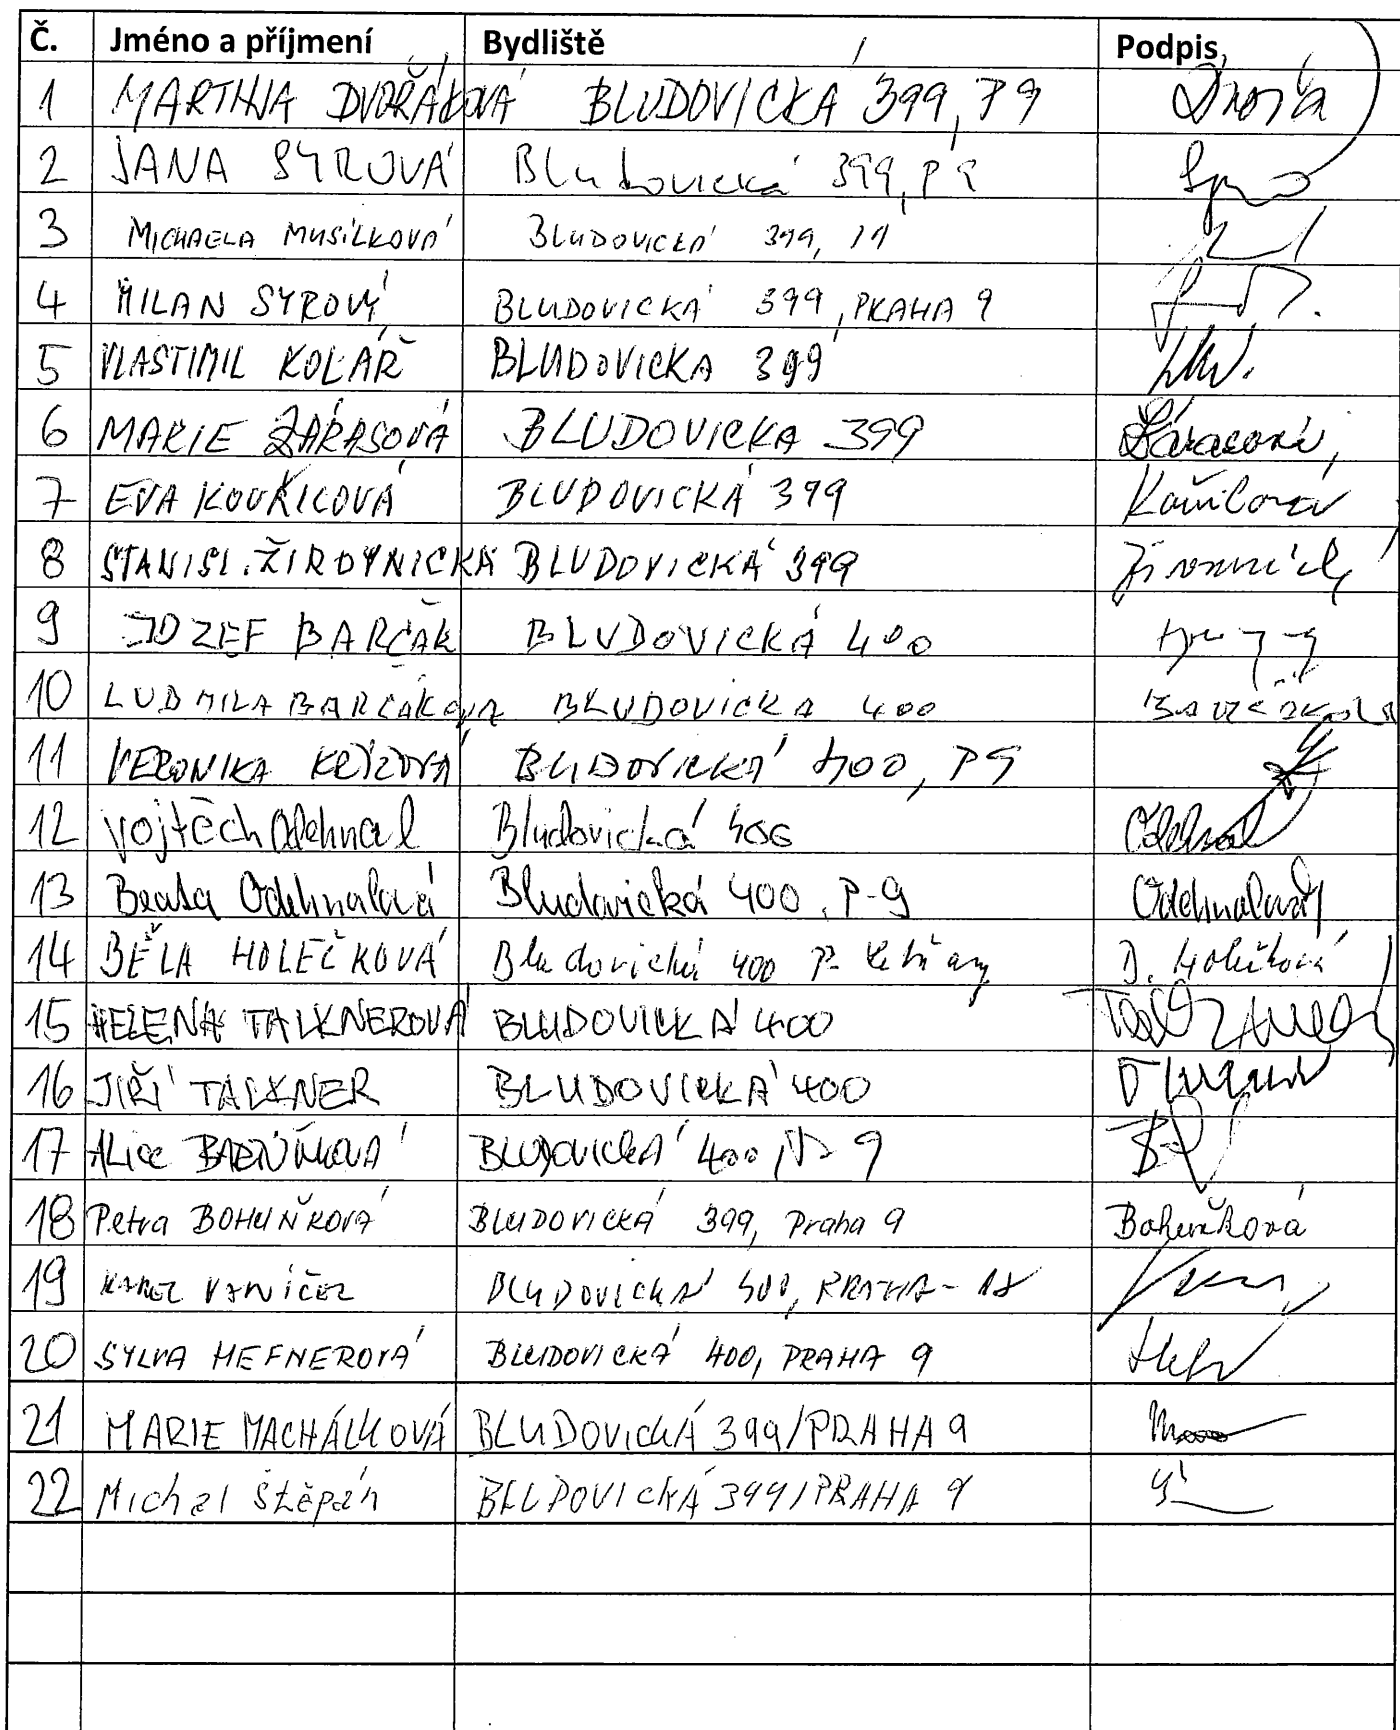 Č. Jméno a příjmení Bydliště Podpis
1 MARTINA DVOŘÁKOVÁ BLUDOVICKÁ 399, P9
2 JANA SYROVÁ Bludovická 399, P9
3 MICHAELA MUSÍLKOVÁ BLUDOVICKÁ 399,
4 MILAN SYROVÝ BLUDOVICKÁ 399, PRAHA 9
5 VLASTIMIL KOLÁŘ BLUDOVICKA 399
6 MARIE ŽÁRASOVÁ BLUDOVICKA 399
7 EVA KOUŘILOVÁ BLUDOVICKÁ 399 Kouřilová
8 STANISL. ŽIROVNICKÁ BLUDOVICKÁ 399
9 JOZEF BARČÁK BLUDOVICKÁ 400
10 LUDMILA BARČÁKOVA BLUDOVICKA 400
11 VERONIKA BLUDOVICKÁ 400, P9
12 Vojtěch Odehnal Bludovická 400 Odehnal
13 Beata Odehnalová Bludovická 400, P-9 Odehnalová
14 BĚLA HOLEČKOVÁ Bludovická 400 P- Letňany Holečková
15 HELENA TALKNEROVÁ BLUDOVICKÁ 400
16 JIŘÍ TALKNER BLUDOVICKÁ 400
17 Alice BLUDOVICKÁ 400, P 9
18 Petra BOHUŇKOVÁ BLUDOVICKÁ 399, Praha 9 Bohuňková
19 KAREL VANÍČEK BLUDOVICKÁ 400, PRAHA - 18
20 SYLVA HEFNEROVÁ BLUDOVICKÁ 400, PRAHA 9
21 MARIE MACHÁLKOVÁ BLUDOVICKÁ 399/PRAHA 9
22 Michal Štěpán BLUDOVICKÁ 399/PRAHA 9